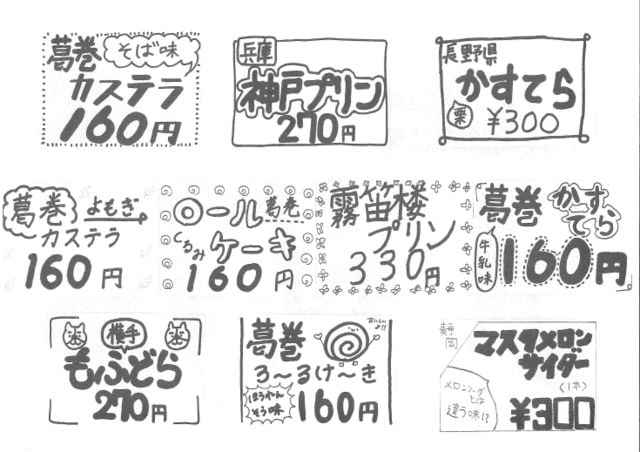 葛巻 そば味
カステラ
160円
兵庫
神戸プリン
270円
長野県
かすてら
栗 ¥300
葛巻 よもぎ
カステラ
160円
ロール 葛巻
くるみ ケーキ
160円
霧笛楼
プリン
330円
葛巻 かすてら
牛乳味 160円
横手
もふどら
270円
おいしいよ!!
葛巻
ろ〜るけ〜き
ほうれんそう味
160円
静岡
マスクメロン
サイダー
(1本)
メロンソーダ
とは
違う味!?
¥300